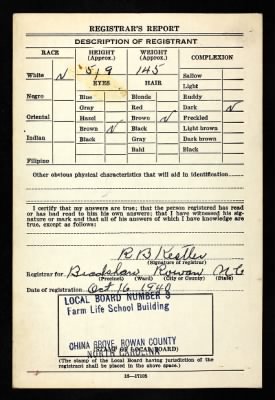 REGISTRAR'S REPORT
DESCRIPTION OF REGISTRANT
RACE HEIGHT (Approx.) WEIGHT (Approx.) COMPLEXION
White 5/9 145 Sallow
EYES HAIR Light
Negro Blue Blonde Ruddy
Gray Red Dark
Oriental Hazel Brown Freckled
Brown Black Light brown
Indian Black Gray Dark brown
Bald Black
Filipino
Other obvious physical characteristics that will aid in identification
I certify that my answers are true; that the person registered has read
or has had read to him his own answers; that I have witnessed his sig-
nature or mark and that all of his answers of which I have knowledge are
true, except as follows:
R B Kestler
(Signature of registrar)
Registrar for Bradshaw Rowan N C
(Precinct) (Ward) (City or County) (State)
Date of registration Oct 16 1940
LOCAL BOARD NUMBER 3
Farm Life School Building
CHINA GROVE, ROWAN COUNTY
NORTH CAROLINA
(STAMP OF LOCAL BOARD)
(The stamp of the Local Board having jurisdiction of the
registrant shall be placed in the above space.)
16—17105